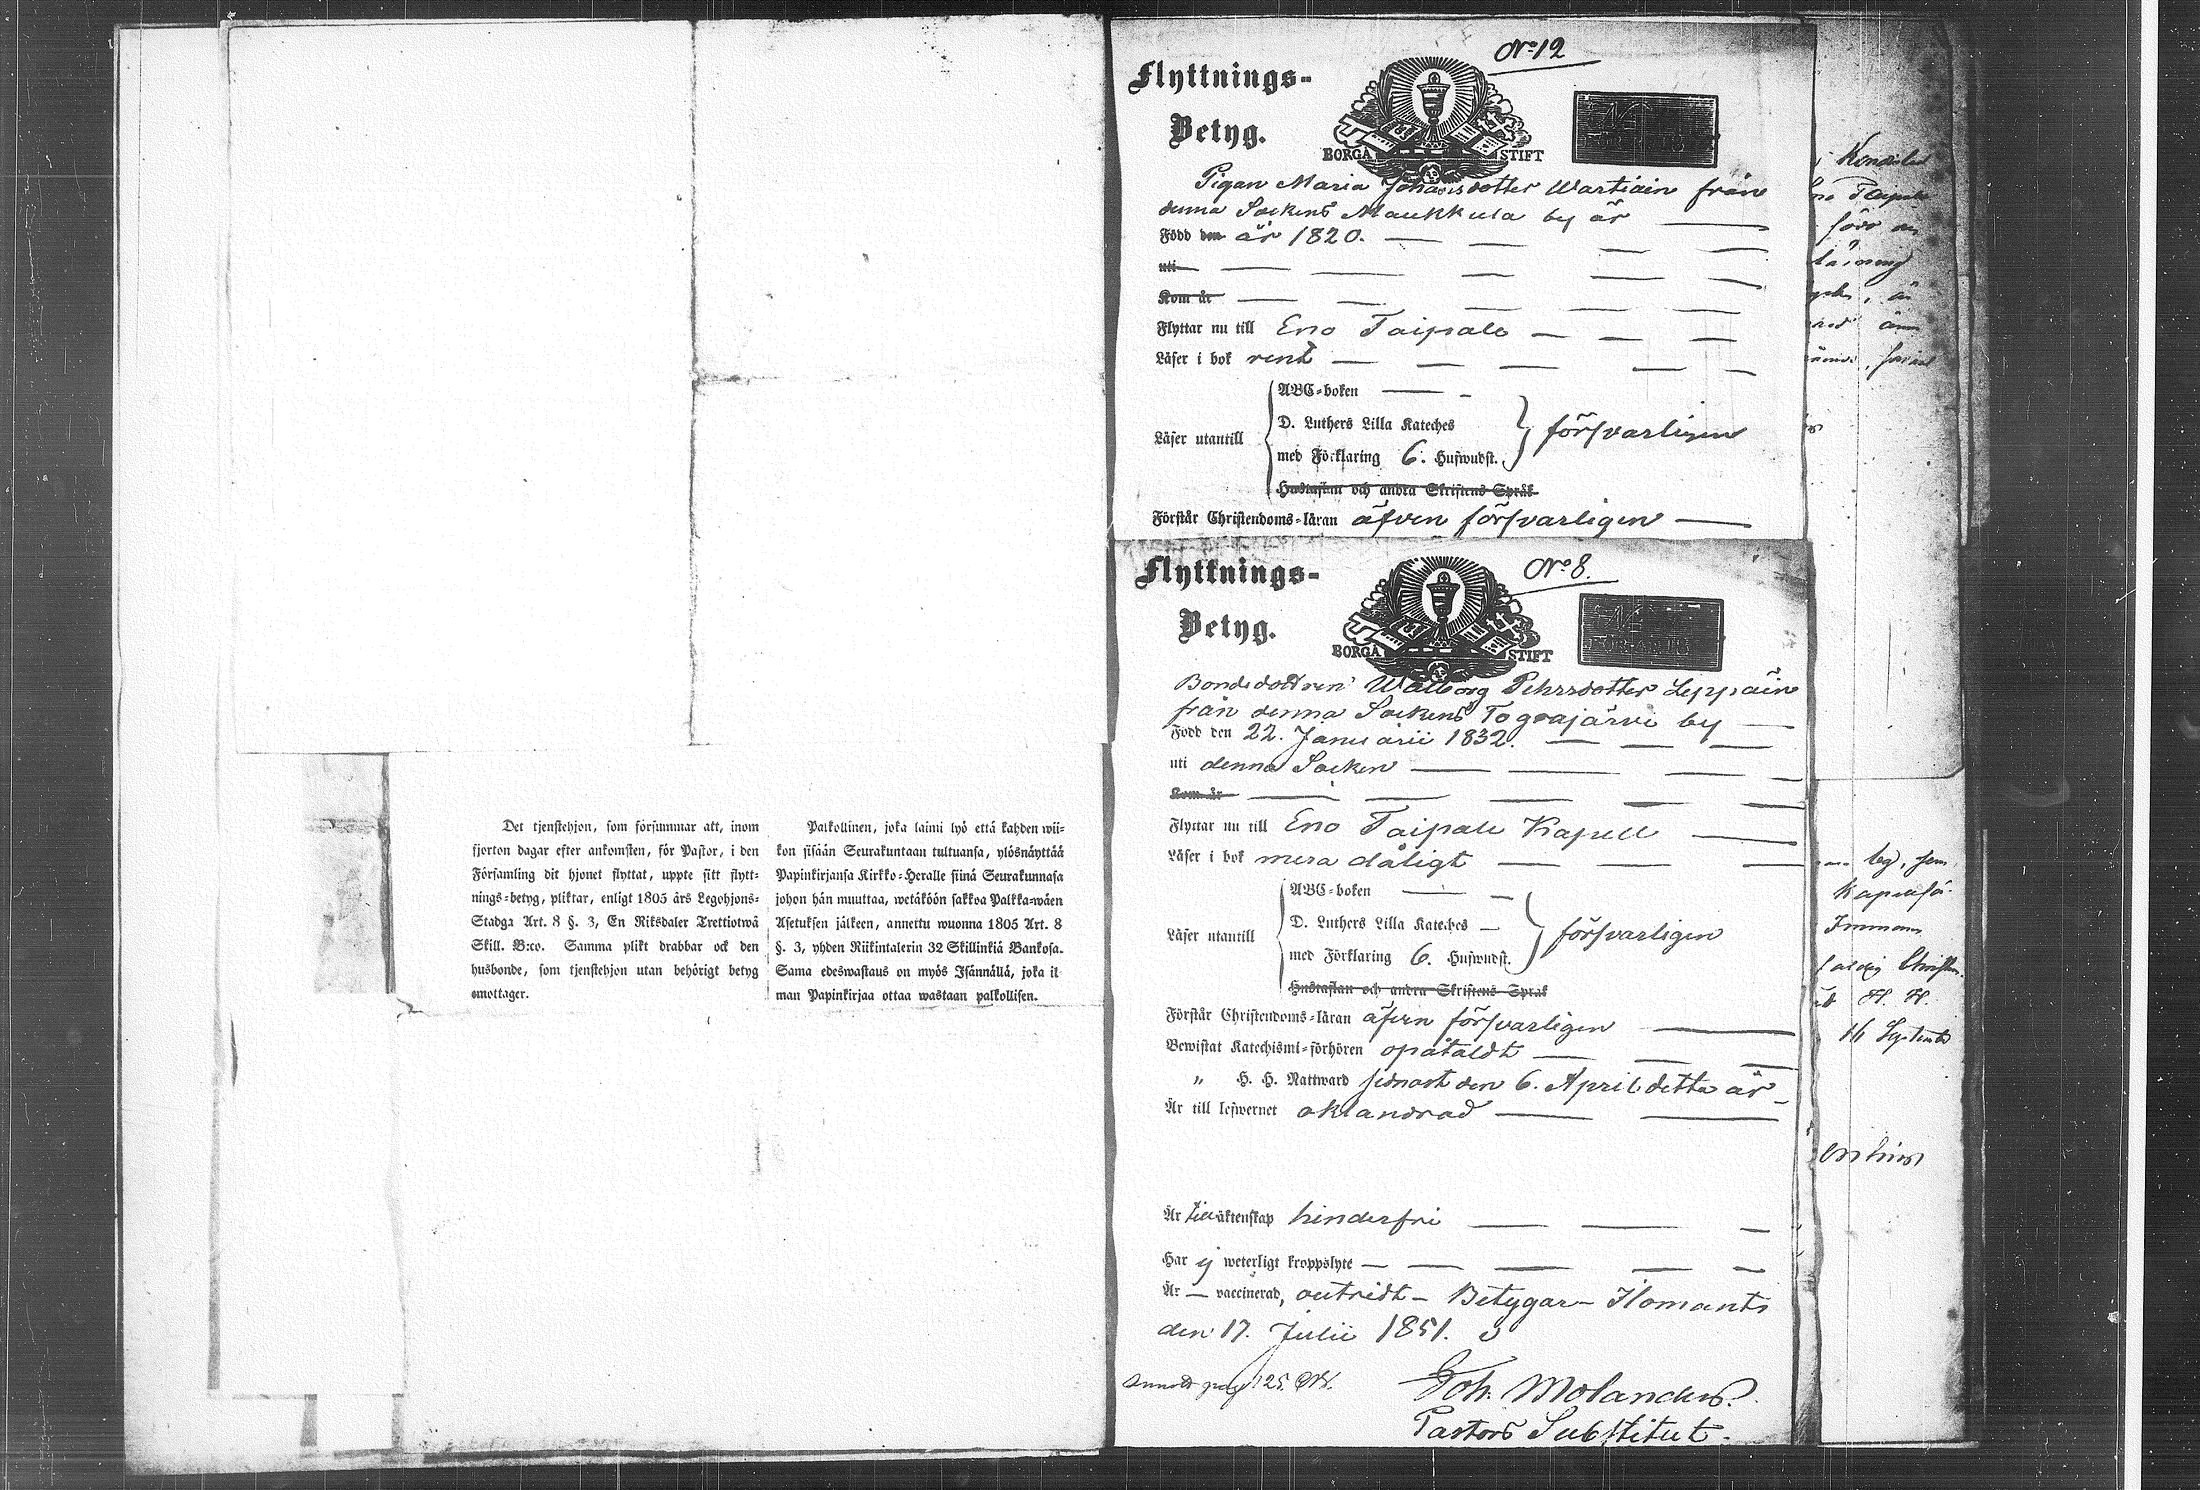 Det tjenstehjon, som försummar att, inom
fjorton dagar efter ankomsten, för Pastor, i den
Församling dit hjonet flyttat, uppte sitt flytt-
nings-betyg, pliktar, enligt 1805 års Legohjons-
Stadga Art. 8 §. 3, En Riksdaler Trettiotwå
Skill. B:co. Samma plikt drabbar ock den
husbonde, som tjenstehjon utan behörigt betyg
emottager.
Palkollinen, joka laimi lyö että kahden wii-
kon sisään Seurakuntaan tultuansa, ylösnäyttää
Papinkirjansa Kirkko-Heralle siinä Seurakunnasa
johon hän muuttaa, wetäköön sakkoa Palkka-wäen
Asetuksen jälkeen, annettu wuonna 1805 Art. 8
§. 3, yhden Riikintalerin 32 Skillinkiä Bankosa.
Sama edeswastaus on myös Isännällä, joka il
man Papinkirjaa ottaa wastaan palkollisen.
No 12
Flyttnings-
Betyg.
BORGÅ STIFT
Pigan Maria Johansdotter Wartiain från
denna Sockens Maukkula by är
Född den år 1820.
uti
Kom år
Flyttar nu till Eno Taipale
Läser i bok rent
ABC-boken
D. Luthers Lilla Kateches
Läser utantill försvarligen
med Förklaring 6. Hufwudst.
Hustaflan och andra Skriftens Språk
Förstår Christendoms-läran äfven försvarligen
No 8.
Flyttnings-
Betyg.
BORGÅ STIFT
Bondedottren Walborg Pehrsdotter Leppäin
från denna Sockens Tograjärvi by
Född den 22. Januarii 1832.
uti denna Socken
Kom år
Flyttar nu till Eno Taipale Kapell
Läser i bok mera dåligt
ABC-boken
D. Luthers Lilla Kateches
Läser utantill försvarligen
med Förklaring 6. Hufwudst.
Hustaflan och andra Skriftens Språk
Förstår Christendoms-läran äfven försvarligen
Bewistat Katechismi-förhören opåtaldt
" H. H. Nattward sednast den 6. April detta år
Är till lefwernet oklandrad
Är till äktenskap hinderfri
Har ej weterligt kroppslyte
Är — vaccinerad, outredt — Betygar — Ilomants
den 17. Julii 1851.
Joh. Molander.
Pastors Substitut.
Kapellfö-
Immanu
H. H.
16 Septemb